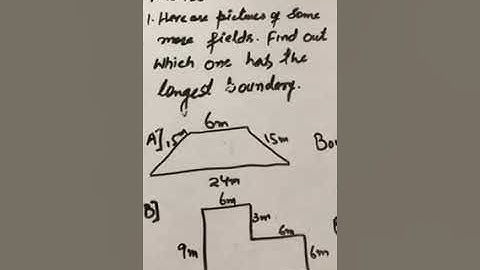 1. Here are pictures of Some
more fields. Find out
which one has the
longest boundary.
6m
A] 15m 15m
24m
6m
B]
3m
6m
9m 6m